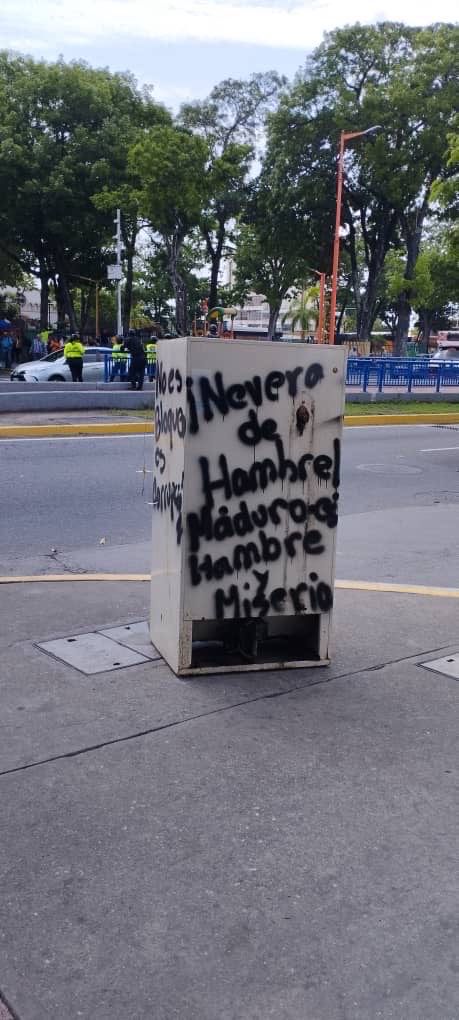 No es
Bloqueo
es
¡Nevera
de
Hambre!
Maduro es
Hambre
y
Miseria